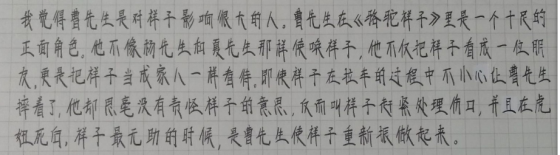 我觉得曹先生是对祥子影响很大的人。曹先生在《骆驼祥子》里是一个十足的
正面角色。他不像杨先生和夏先生那样使唤祥子,他不仅把祥子看成一位朋
友,更是把祥子当成家人一样看待,即使祥子在拉车的过程中不小心让曹先生
摔着了,他都思毫没有责怪祥子的意思,反而叫祥子赶紧处理伤口,并且在虎
妞死后,祥子最无助的时候,是曹先生使祥子重新振做起来。